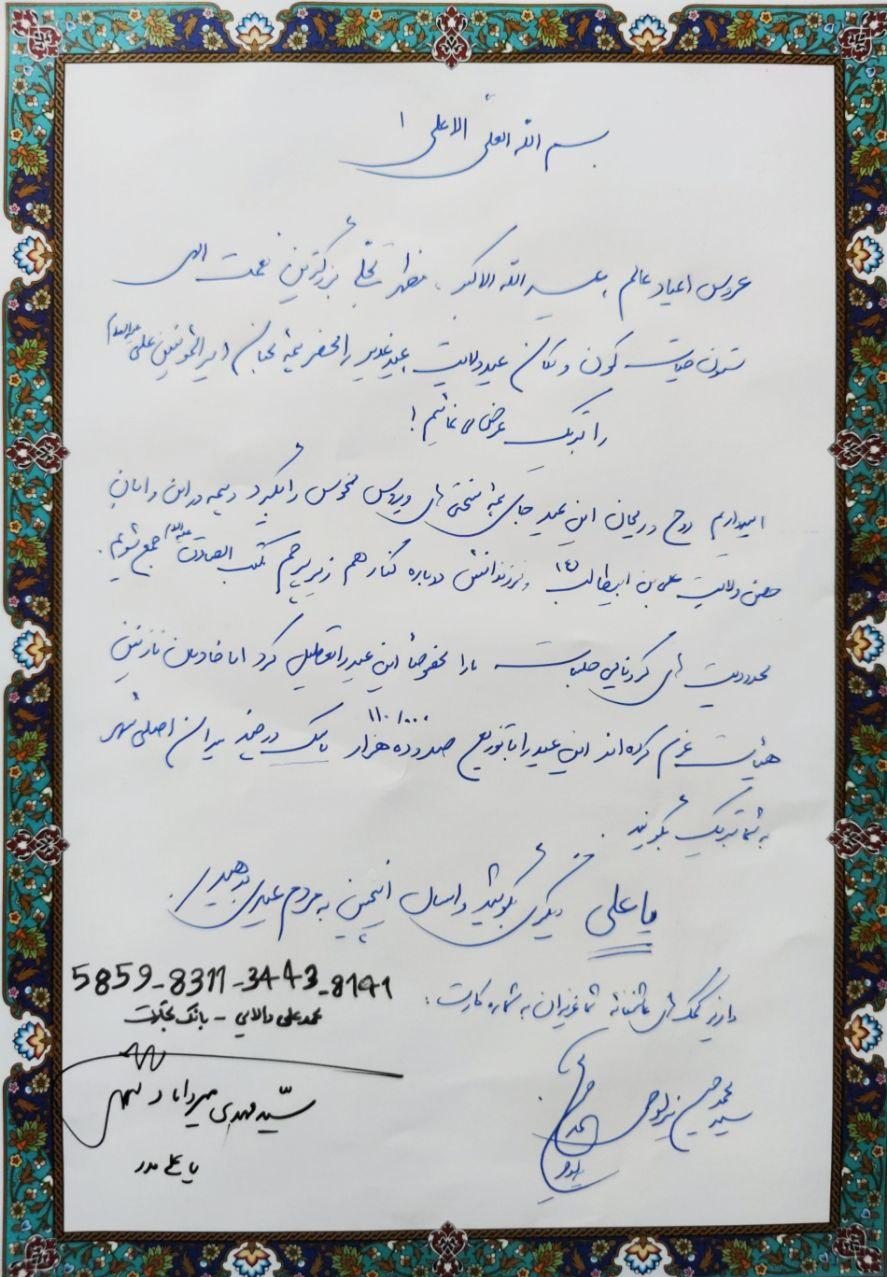 بسم الله العلی الاعلی
عروس اعیاد عالم ، عید الله الاکبر ، مظهر تجلی بزرگترین نعمت الهی
ستون حیات کون و مکان عید ولایت ، عید غدیر را محضر همهٔ محبان امیرالمؤمنین علی علیه السلام
را تبریک عرض می نمائیم !
امیدواریم روح و ریحان این عید جای همهٔ سختی های ویروس منحوس را بگیرد و همه در امن و امان
حصن ولایت علی بن ابیطالب و فرزندانش دوباره کنار هم زیر پرچم مکتب الصادق علیه السلام جمع شویم .
محدودیت های کرونایی جلسات ما را مخصوصاً این عید را تعطیل کرد اما خادمان نازنین
هیأت عزم کرده اند این عید را با توزیع صد و ده هزار ۱۱۰/۰۰۰ ماسک در چند میدان اصلی شهر
به شما تبریک بگویند .
یا علی دیگری بگوئید و امسال اینچنین به مردم عیدی بدهید .
واریز کمک های عاشقانه شما عزیزان به شماره کارت :
5859-8311-3443-8141
محمد علی والایی - بانک تجارت
سید محمد حسین
سید مهدی میرداماد
یا علی مدد